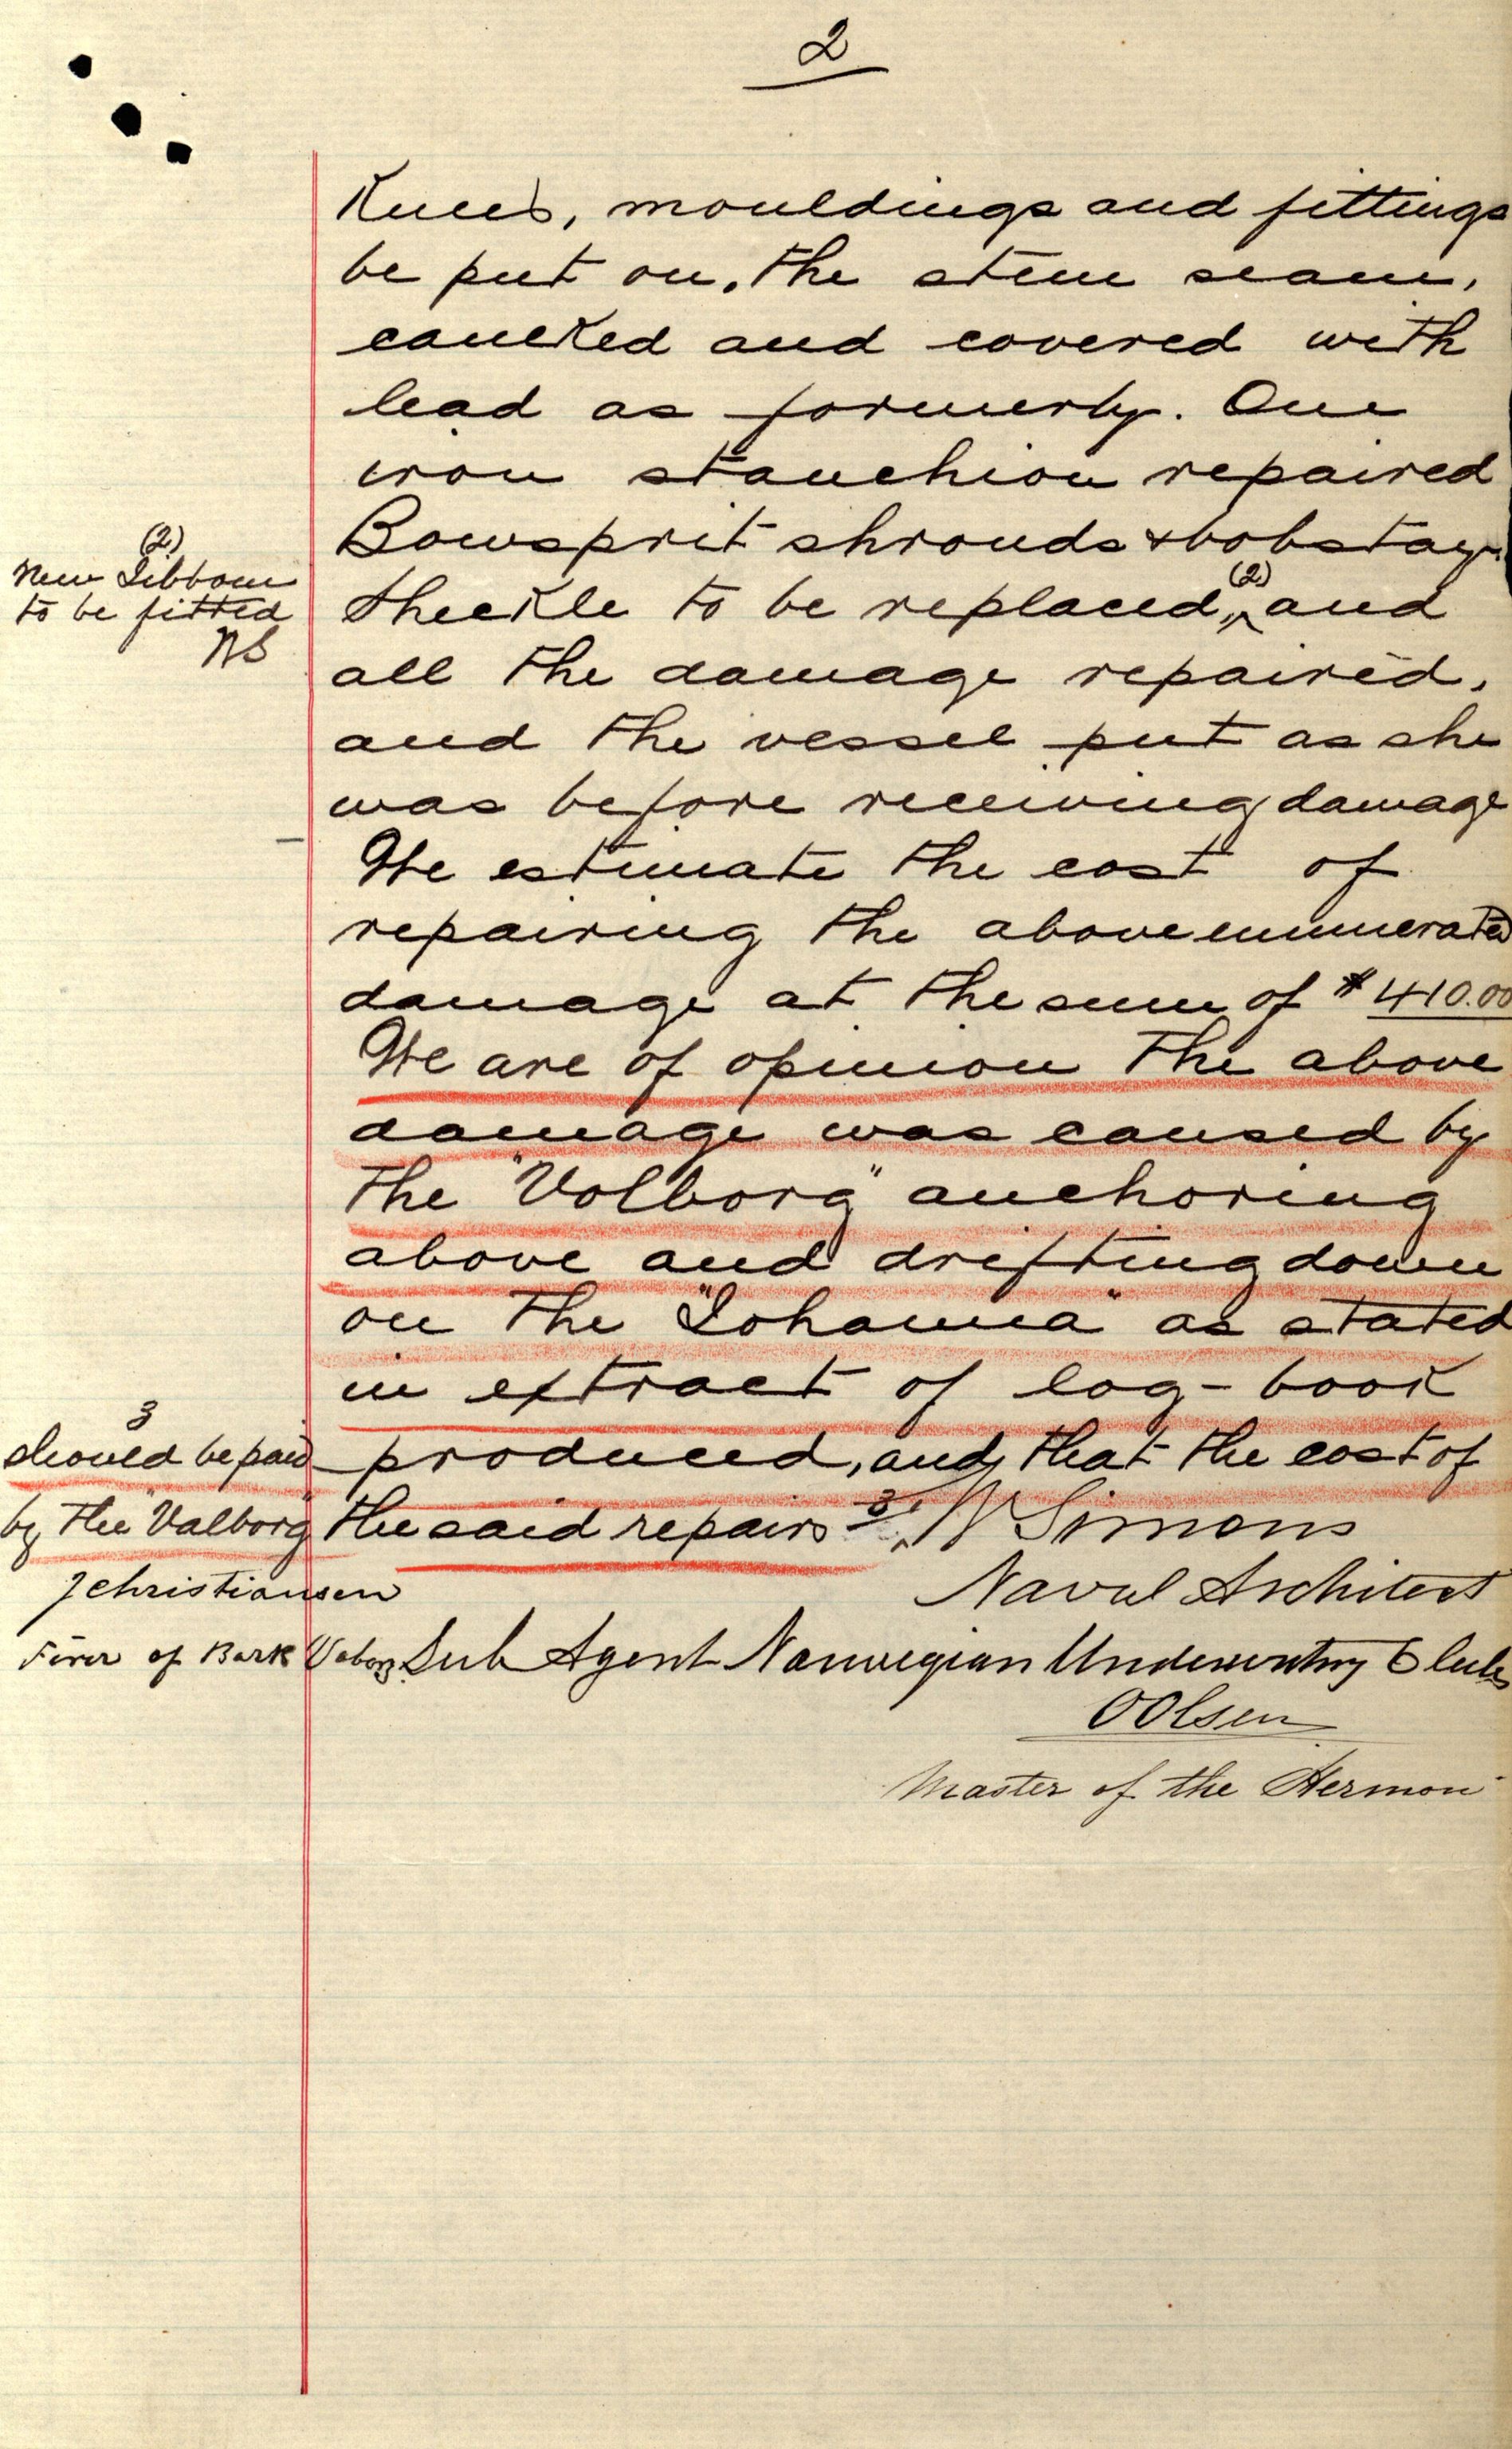 2
Knees, mouldings and fittings
be put on, the stem seam,
caulked and covered with
lead as formerly. One
iron stanchion repaired
Bowsprit shrouds & bobstay
(2)
New Jibboom
to be fitted
NS
to be replaced, (2) and
all the damage repaired,
and the vessel put as she
was before receiving damage
We estimate the cost of
repairing the above enumerated
damage at the sum of $ 410.00
We are of opinion the above
damage was caused by
the "Volborg" anchoring
above and drifting down
on the "Johanna" as stated
in extract of log-book
produced, and that the cost of
the said repairs 3
3
should be paid
by the "Valborg"
W Simons
Naval Architect
Sub Agent Norwegian Underwriting Club
J Christiansen
of Bark
O Olsen
Master of the Hermon